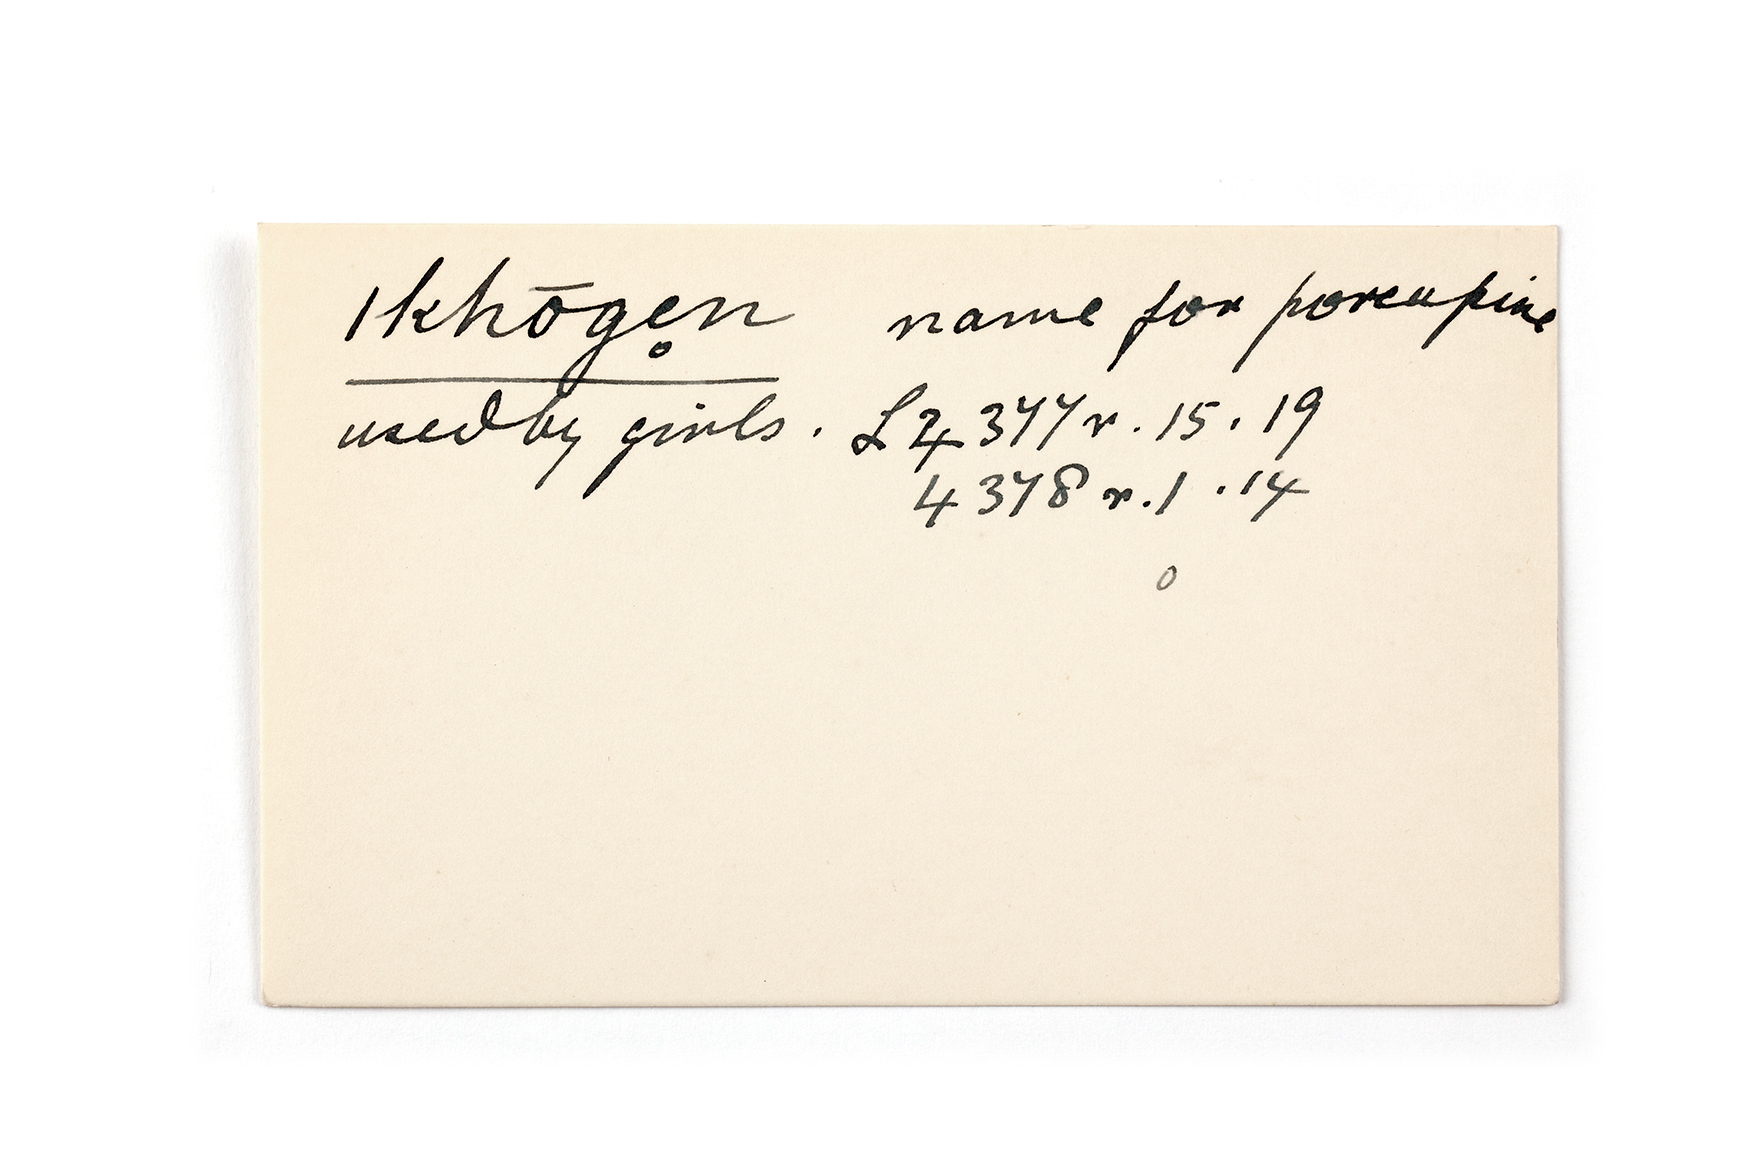 ǀkhōge̥n name for porcupine
used by girls. L 4377 r. 15. 19
4378 r. 1 . 14
0